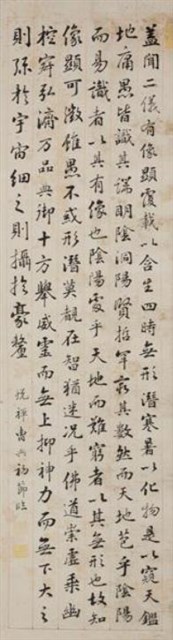 蓋聞二儀有像顯覆載以含生四時無形潛寒暑以化物是以窺天鑑
地庸愚皆識其端明陰洞陽賢哲罕窮其數然而天地苞乎陰陽
而易識者以其有像也陰陽處乎天地而難窮者以其無形也故知
像顯可徵雖愚不惑形潛莫覩在智猶迷況乎佛道崇虛乘幽
控寂弘濟萬品典御十方舉威靈而無上抑神力而無下大之
則彌於宇宙細之則攝於豪釐
臨